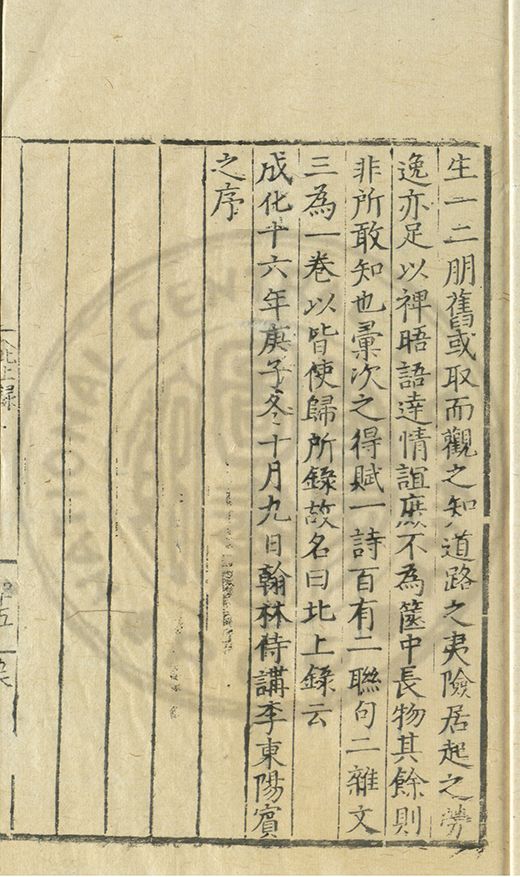 生一二朋舊或取而觀之知道路之夷險居起之勞
逸亦足以裨晤語達情誼庶不為篋中長物其餘則
非所敢知也彙次之得賦一詩百有二聯句二雜文
三為一卷以皆使歸所錄故名曰北上錄云
成化十六年庚子冬十月九日翰林侍講李東陽賓
之序
北上録